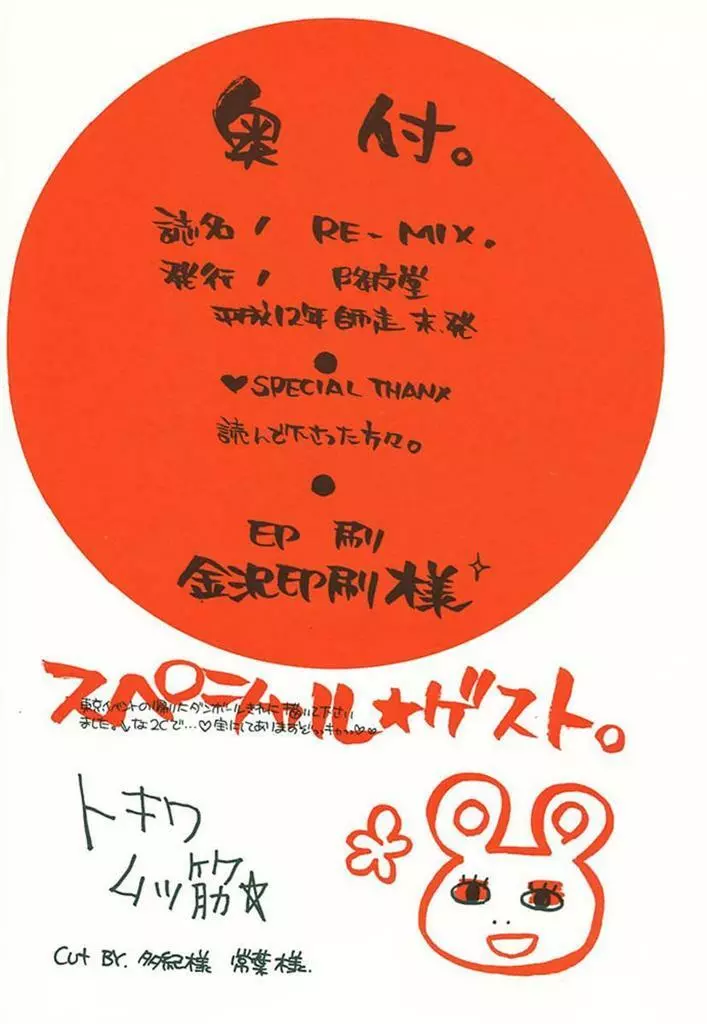 奥付。
誌名/ RE-MIX.
発行/ 降方堂
平成12年師走末.発
♥SPECIAL THANX
読んで下さった方々。
印刷
金沢印刷様
スペシャル★ゲスト。
東京イベントの帰りにダンボールきれに描いて下さい
ました。しな2Cで…♡宝にしてあります
トキワ
ムツ筋☆
Cut BY. 多紀様 常葉様.